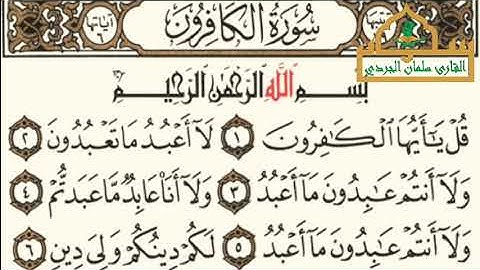 سُورَةُ الْكَافِرُونَ
آياتها
القارئ سلمان الجردي
بِسْمِ اللَّهِ الرَّحْمَٰنِ الرَّحِيمِ
قُلْ يَٰٓأَيُّهَا الْكَٰفِرُونَ ١ لَآ أَعْبُدُ مَا تَعْبُدُونَ ٢
وَلَآ أَنتُمْ عَٰبِدُونَ مَآ أَعْبُدُ ٣ وَلَآ أَنَا۠ عَابِدٌ مَّا عَبَدتُّمْ ٤
وَلَآ أَنتُمْ عَٰبِدُونَ مَآ أَعْبُدُ ٥ لَكُمْ دِينُكُمْ وَلِىَ دِينِ ٦